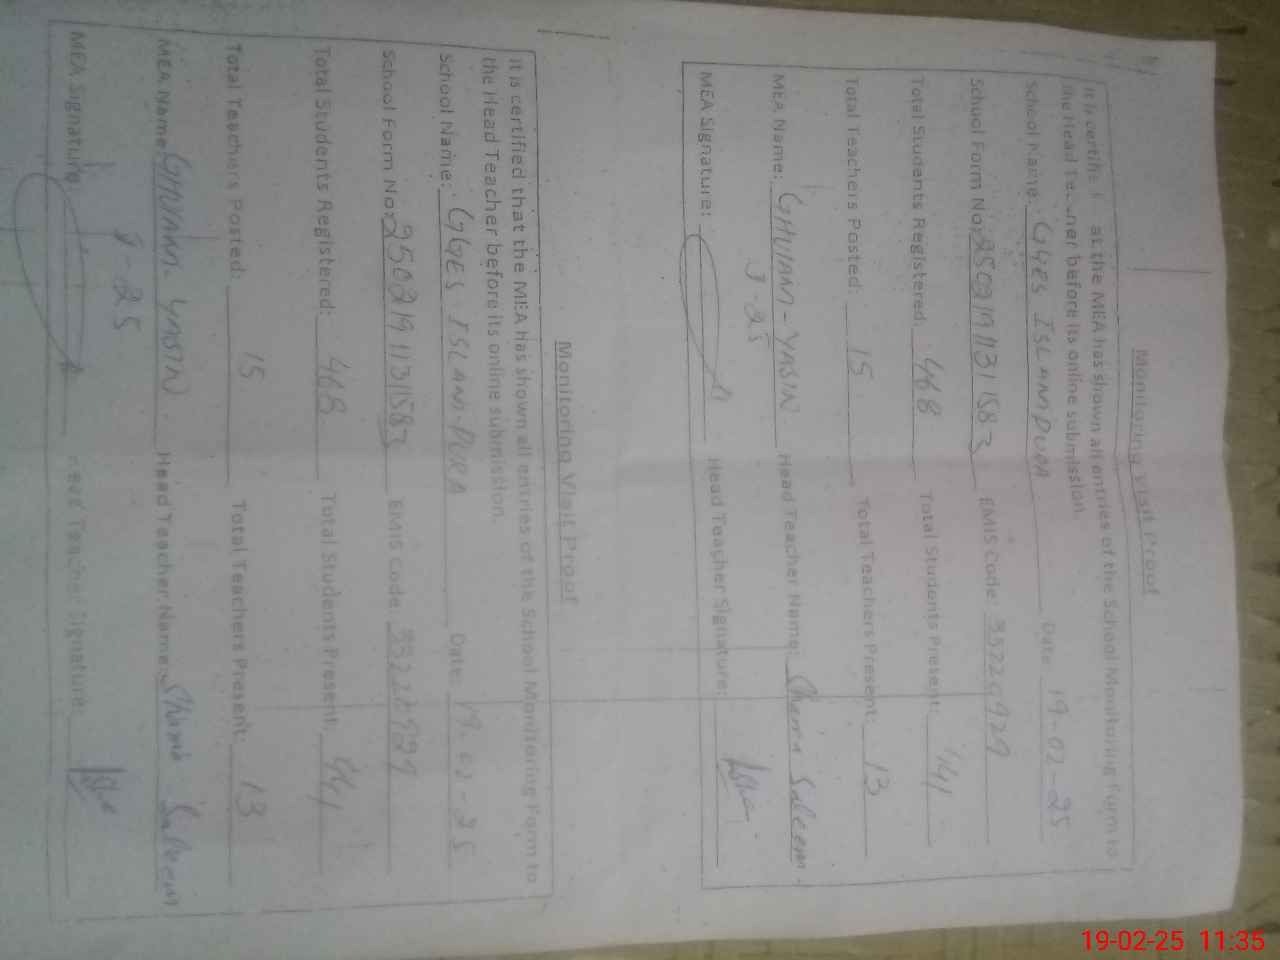 Monitoring Visit Proof
It is at the MEA has shown all entries of the School Monitoring Form to
the Head before its online submission.
School Name: GGES ISLAMPURA Date 19-02-25
School Form No: 25021911311583 EMIS Code:
Total Students Registered: 468 Total Students Present: 441
Total Teachers Posted: 15 Total Teachers Present: 13
MEA Name: GHULAM-YASIN Head Teacher Name: Saleem
MEA Signature: Head Teacher Signature:
Monitoring Visit Proof
It is certified that the MEA has shown all entries of the School Monitoring Form to
the Head Teacher before its online submission.
School Name: GGES ISLAM-PURA Date: 19-02-25
School Form No: 25021911311583 EMIS Code
Total Students Registered: 468 Total Students Present: 441
Total Teachers Posted: 15 Total Teachers Present: 13
MEA Name GHULAM-YASIN Head Teacher Name: Saleem
MEA Signature Teacher Signature:
19-02-25 11:35